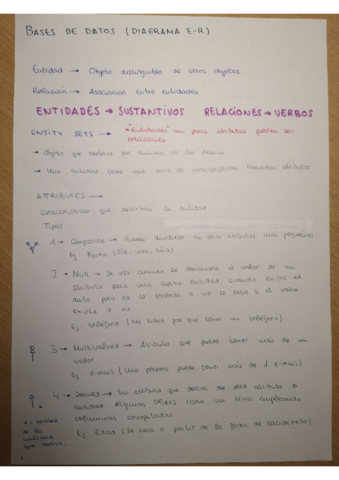 BASES DE DATOS (DIAGRAMA E-R)
Entidad → Objeto distinguible de otros objetos
Relación → Asociación entre entidades
ENTIDADES → SUSTANTIVOS RELACIONES → VERBOS
ENTITY SETS → "Entidades" con pocos atributos pueden ser
relaciones
→ Objeto que se distingue de los demás
→ Una entidad posee una serie de características llamadas atributos
ATTRIBUTES →
Características que describen la entidad
Tipos
1 → Composite → Pueden dividirse en otros atributos más pequeños
Ej Fecha (Día, mes, año)
2 → Null → Se usa cuando se desconoce el valor de un
atributo para una cierta entidad, cuando existe el
dato pero no lo tenemos o no se sabe si el valor
existe o no
Ej teléfono (No tiene por que tener un teléfono)
3 → Multivalued → Atributo que puede tener más de un
valor
Ej e-mail (Una persona puede tener más de 1 e-mail)
4 → Derived → Un atributo que derive de otro atributo o
entidad. Algunos DBMS usan un término empleando
columnas computadas
Ej Edad (Se saca a partir de la fecha de nacimiento)